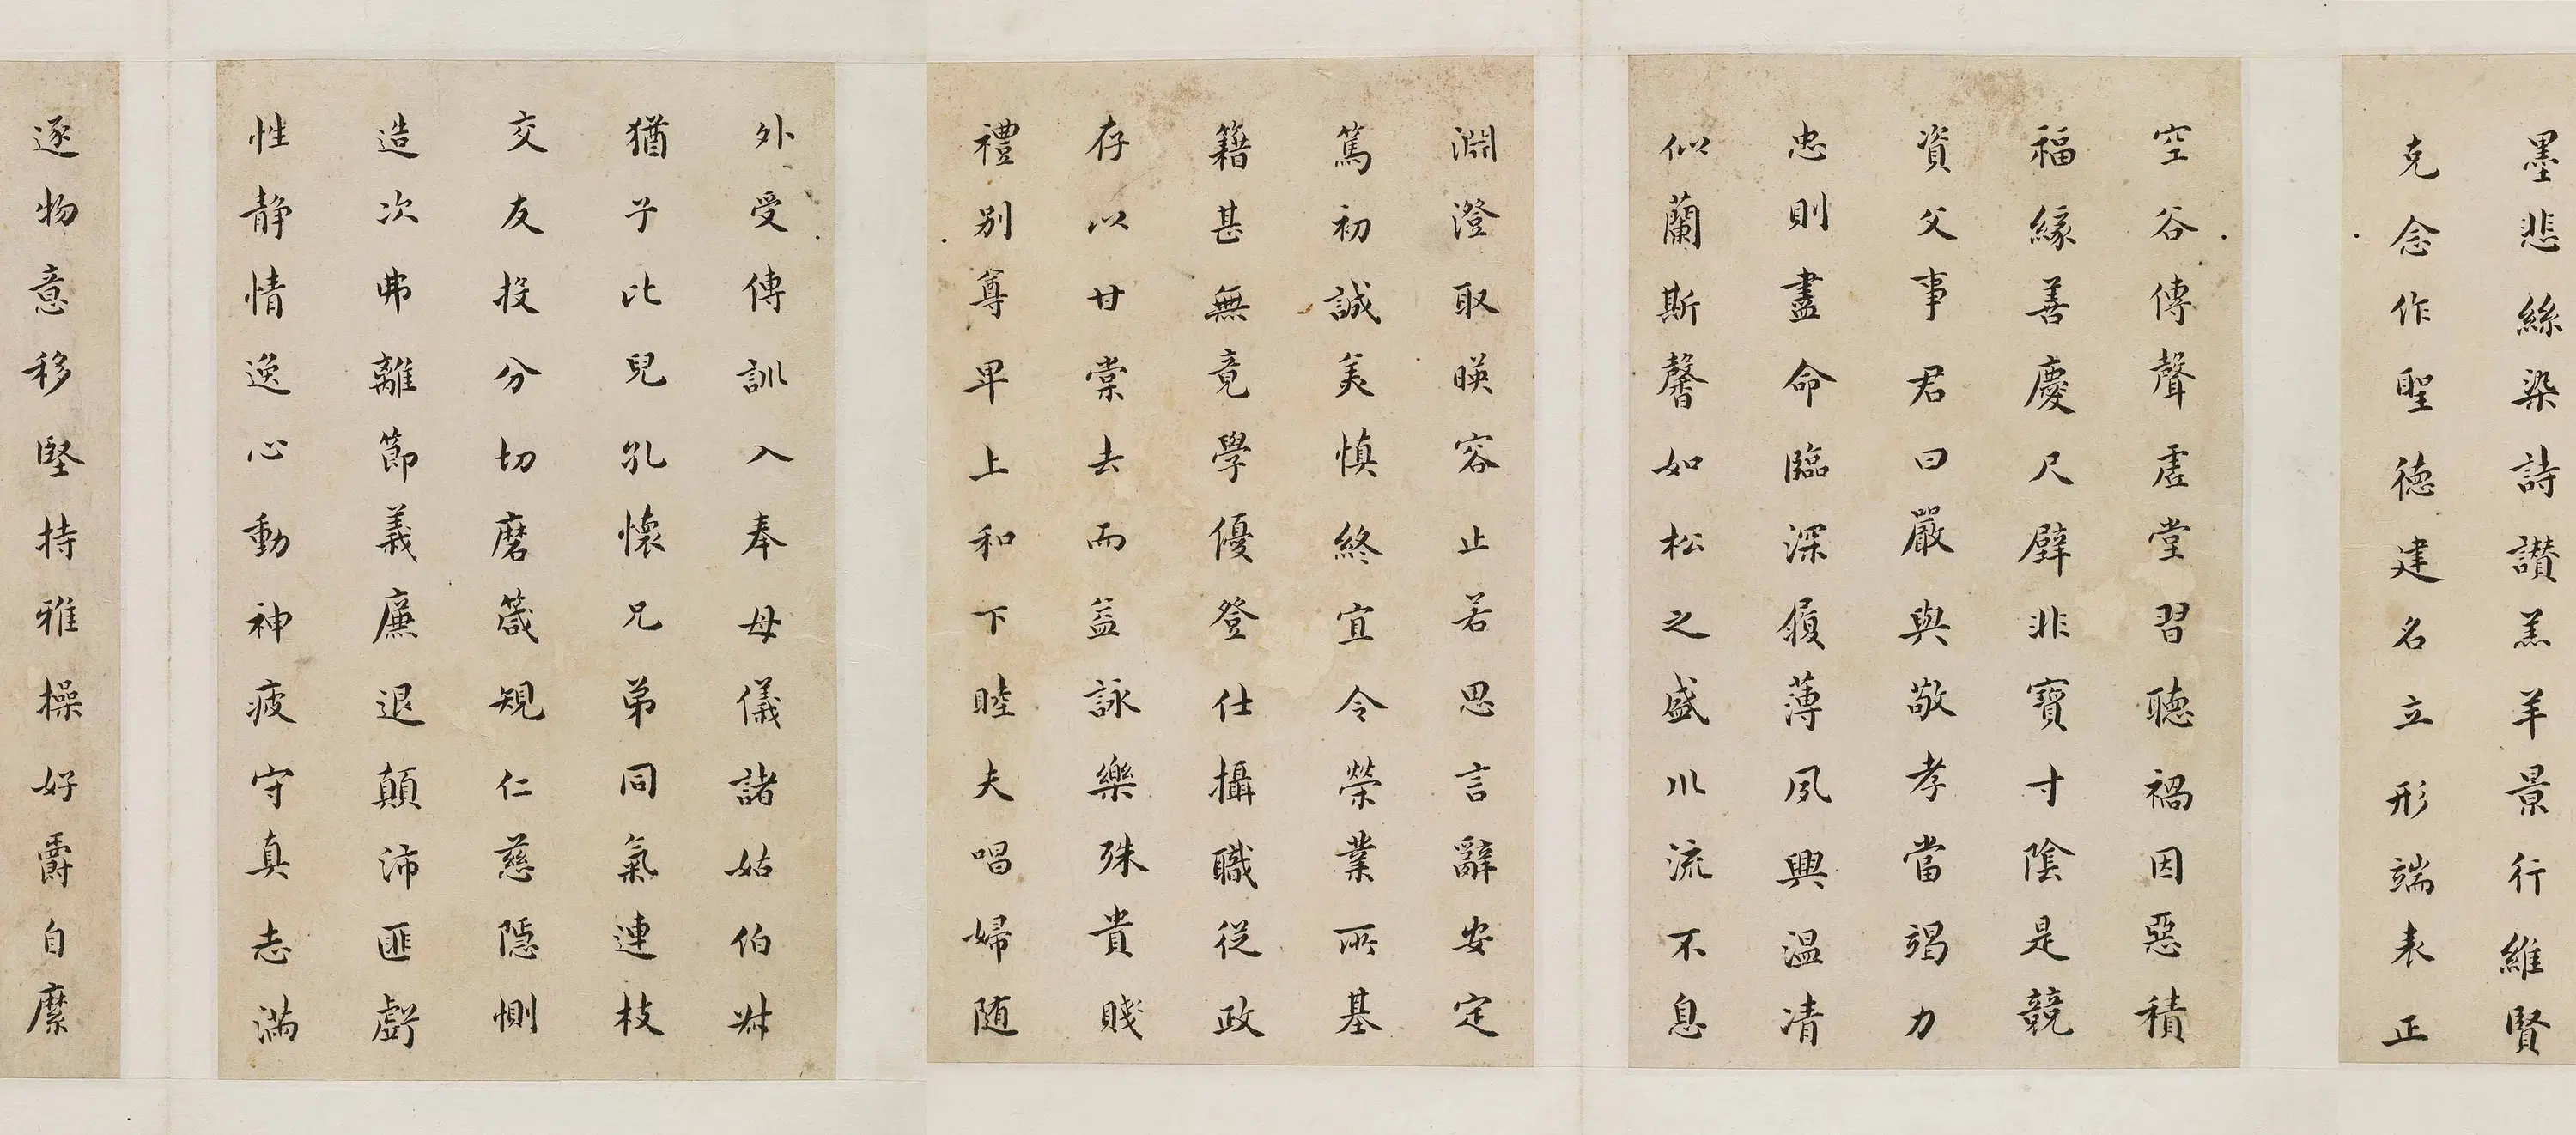 墨悲絲染詩讚羔羊景行維賢
克念作聖德建名立形端表正
空谷傳聲虛堂習聽禍因惡積
福緣善慶尺璧非寶寸陰是競
資父事君曰嚴與敬孝當竭力
忠則盡命臨深履薄夙興温凊
似蘭斯馨如松之盛川流不息
淵澄取暎容止若思言辭安定
篤初誠美慎終宜令榮業所基
籍甚無竟學優登仕攝職從政
存以甘棠去而益詠樂殊貴賤
禮別尊卑上和下睦夫唱婦随
外受傅訓入奉母儀諸姑伯叔
猶子比兒孔懷兄弟同氣連枝
交友投分切磨箴規仁慈隱惻
造次弗離節義廉退顛沛匪虧
性静情逸心動神疲守真志滿
逐物意移堅持雅操好爵自縻